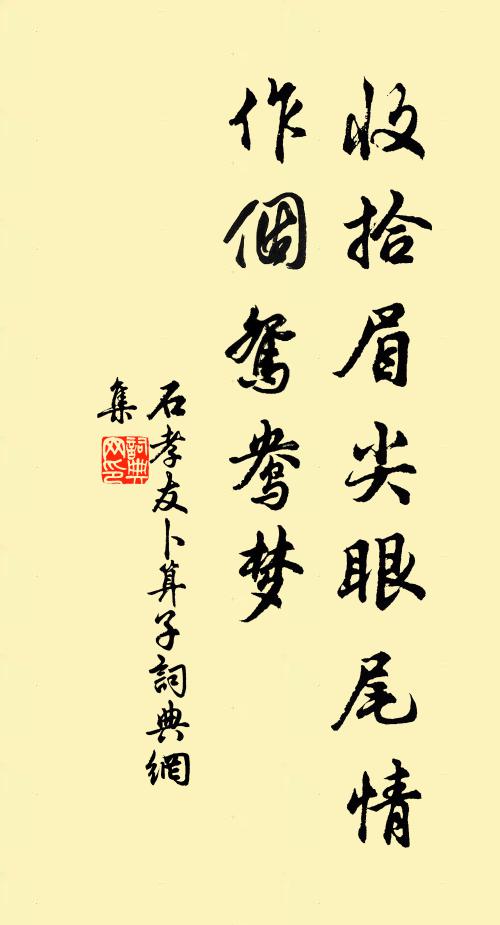 收拾眉尖眼尾情
作個鴛鴦梦
石孝友卜算子詞典網
集
詞典网印